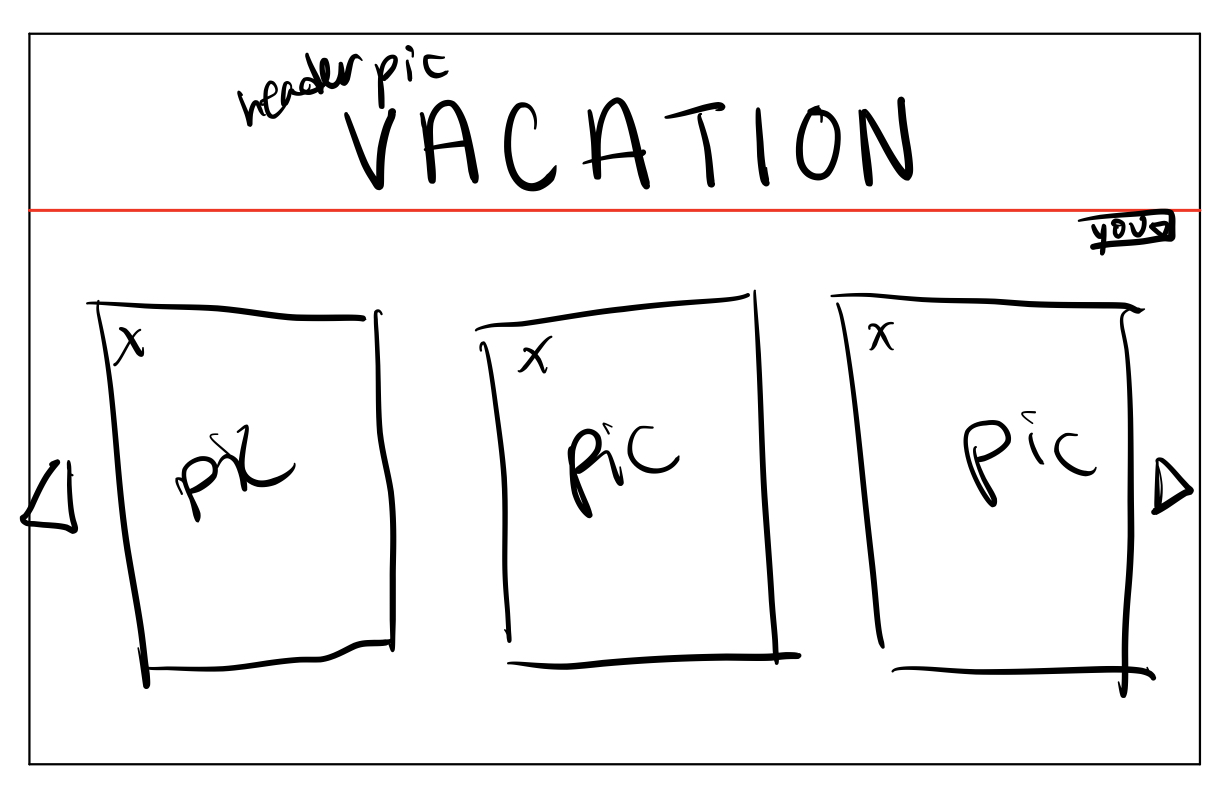 header pic
VACATION
you
x
x
x
pic
pic
pic